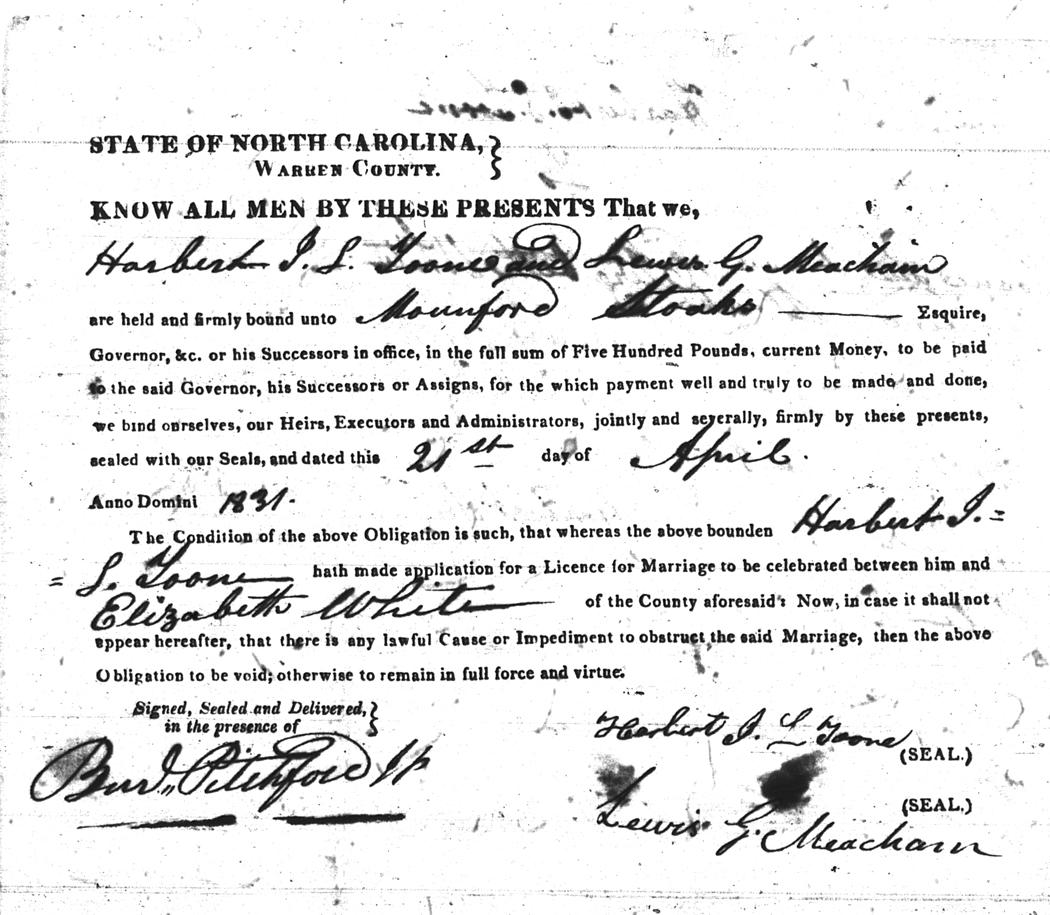 STATE OF NORTH CAROLINA,
WARREN COUNTY.
KNOW ALL MEN BY THESE PRESENTS That we,
Harbert J. L. Toone and Lewis G. Meacham
are held and firmly bound unto Mounford Stoaks Esquire,
Governor, &c. or his Successors in office, in the full sum of Five Hundred Pounds, current Money, to be paid
to the said Governor, his Successors or Assigns, for the which payment well and truly to be made and done,
we bind ourselves, our Heirs, Executors and Administrators, jointly and severally, firmly by these presents,
sealed with our Seals, and dated this 21st day of April.
Anno Domini 1831.
The Condition of the above Obligation is such, that whereas the above bounden Harbert J. =
= L. Toone hath made application for a Licence for Marriage to be celebrated between him and
Elizabeth White of the County aforesaid: Now, in case it shall not
appear hereafter, that there is any lawful Cause or Impediment to obstruct the said Marriage, then the above
Obligation to be void; otherwise to remain in full force and virtue.
Signed, Sealed and Delivered,
in the presence of
Burd. Pitchford JP
Harbert J. L. Toone (SEAL.)
(SEAL.)
Lewis G. Meacham